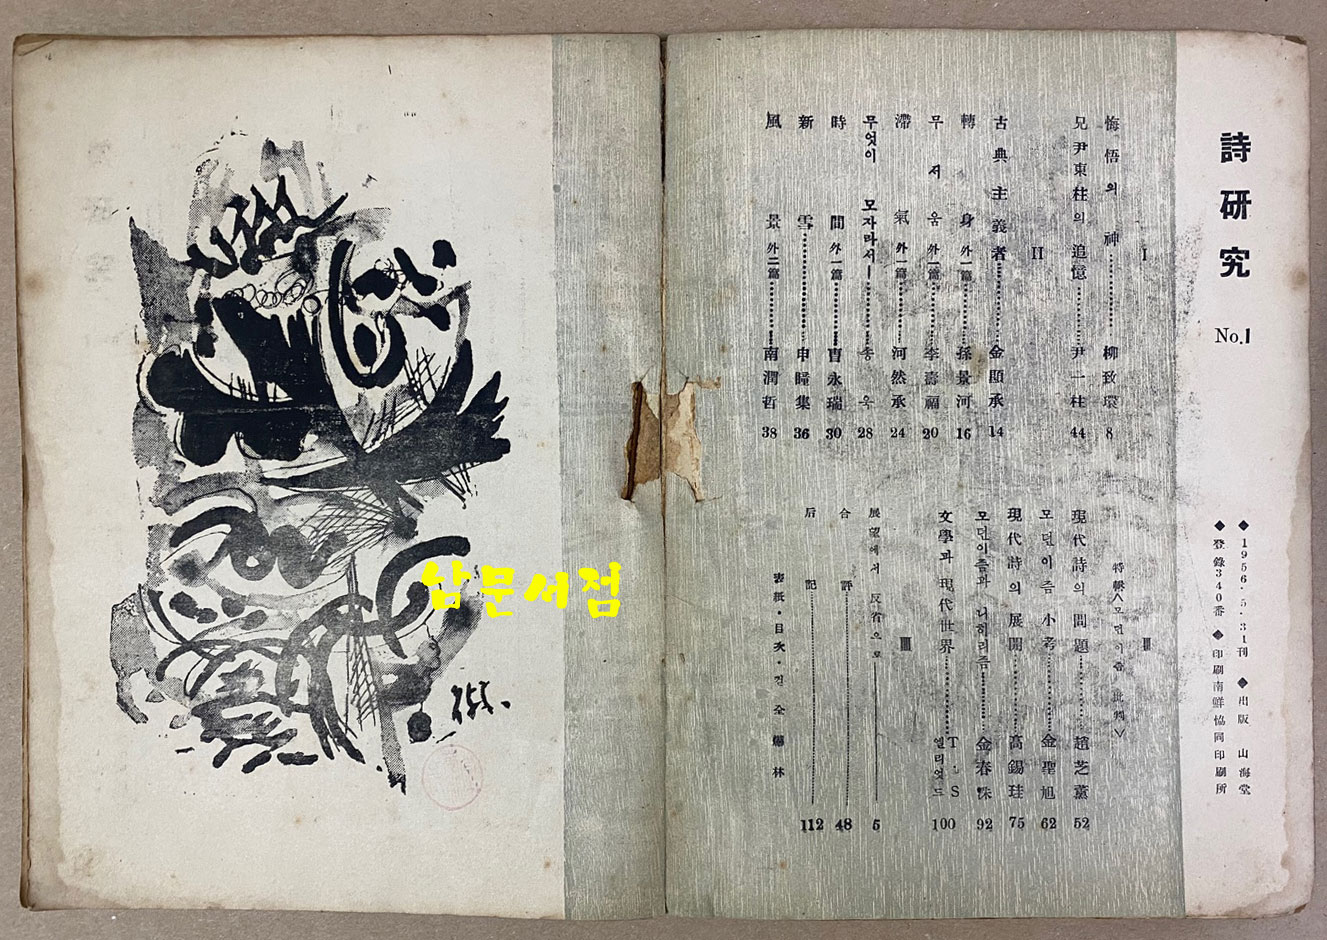 詩研究
No.1
◆1956·5·31刊 ◆出版 山海堂
◆登錄340番 ◆印刷南鮮協同印刷所
I
悔悟의 神 柳致環 8
兄尹東柱의 追憶 尹一柱 44
II
古典主義者 金顯承 14
轉身 外一篇 孫景河 16
무서움 外一篇 李壽福 20
滯氣 外一篇 河然承 24
무엇이 모자라서— 송욱 28
時間 外一篇 曺永瑞 30
新雪 申瞳集 36
風景 外二篇 南潤哲 38
III
特輯<모던이즘 批判>
現代詩의 問題 趙芝薰 52
모던이즘 小考 金聖旭 62
現代詩의 展開 高錫珪 75
모던이즘과 니힐리즘 金春洙 92
文學과 現代世界 T.S 엘리엇드 100
III
展望에서 反省으로 5
合評 48
后記 112
表紙·目次·컷 全爀林
남문서점